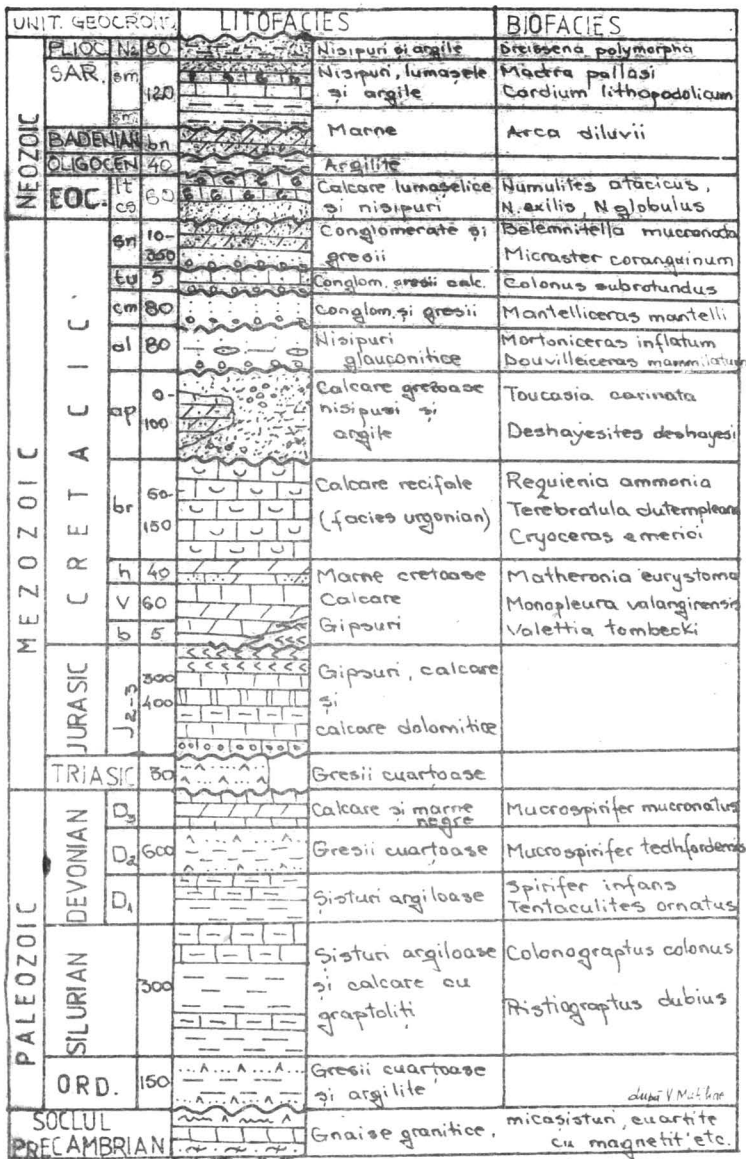 UNIT. GEOCRON. LITOFACIES BIOFACIES
NEOZOIC
PLIOC. N₂ 80 Nisipuri si argile Dreissena polymorpha
SAR. sm 120 Nisipuri, lumașele Mactra pallasi
și argile Cardium lithopodolicum
BADENIAN bn Marne Arca diluvii
OLIGOCEN 40 Argilite
EOC. lt 60 Calcare lumaselice Numulites atacicus,
cs și nisipuri N. exilis, N globulus
MEZOZOIC
CRETACIC
sn 10- Conglomerate și Belemnitella mucronata
350 gresii Micraster coranguinum
tu 5 Conglom. gresii calc. Colonus subrotundus
cm 80 Conglom. și gresii Mantelliceras mantelli
al 80 Nisipuri Mortoniceras inflatum
glauconitice Douvilleiceras mammilatum
ap 0- Calcare grezoase Toucasia carinata
100 nisipuri și
argile Deshayesites deshayesi
br 60- Calcare recifale Requienia ammonia
150 (facies urgonian) Terebratula dutempleana
Cryoceras emerici
h 40 Marne cretoase Matheronia eurystoma
v 60 Calcare Monopleura valangirensis
b 5 Gipsuri Valettia tombecki
JURASIC J₂₋₃ 300 Gipsuri, calcare
400 și
calcare dolomitice
TRIASIC 30 Gresii cuartoase
PALEOZOIC
DEVONIAN
D₃ Calcare și marne Mucrospirifer mucronatus
negre
D₂ 600 Gresii cuartoase Mucrospirifer tedhfordensis
D₁ Șisturi argiloase Spirifer infans
Tentaculites ornatus
SILURIAN 300 Șisturi argiloase Colonograptus colonus
și calcare cu
graptoliti Pristiograptus dubius
ORD. 150 Gresii cuartoase
și argilite
după V.
SOCLUL Gnaise granitice, micasisturi, cuartite
PRECAMBRIAN cu magnetit, etc.